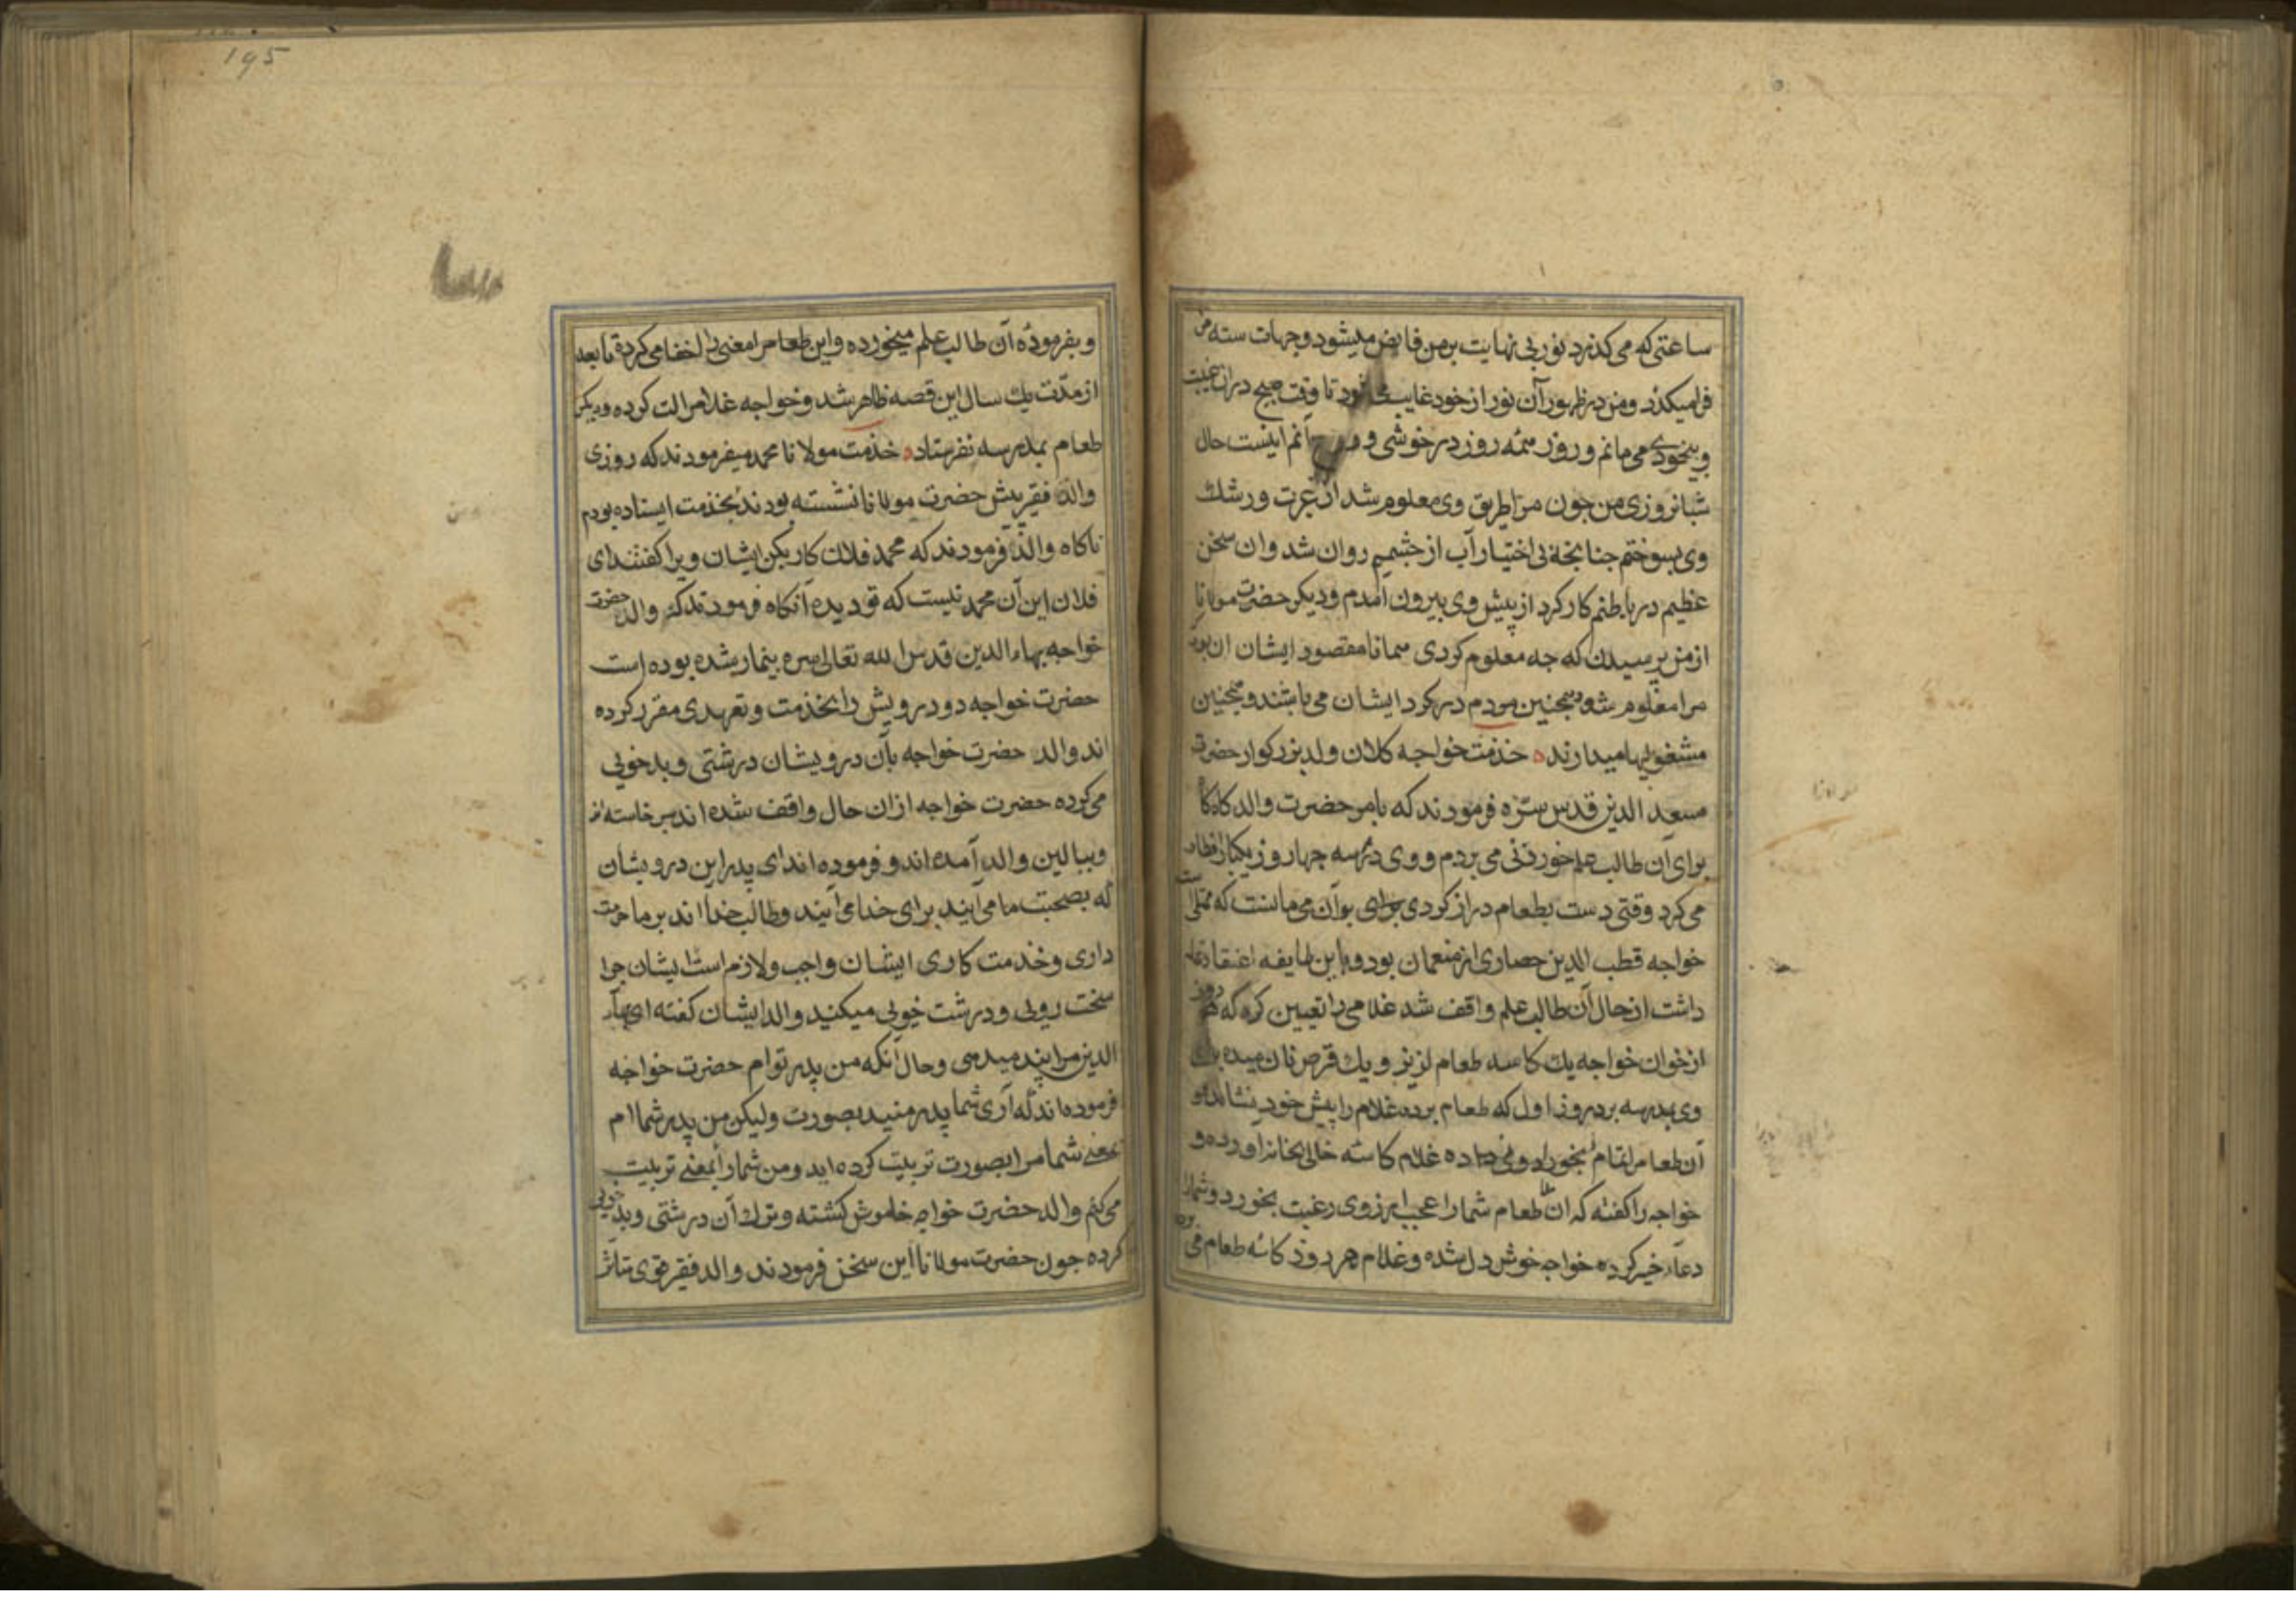 ساعتی که می کذرد نوری بی نهایت بر من فایض میشود و جهات سته من
فرا میکذرد و من در ظهور آن نور از خود غایب می شود تا وقت صبح دران غیبت
و بیخودی می مانم و روز همه روز در خوشی و انم اینست حال
شبانروزی من جون مرا طریق وی معلوم شد از غیرت و رشک
وی بسوختم جنانجه بی اختیار آب از جشمم روان شد وان سخن
عظیم در باطنم کار کرد از پیش وی بیرون آمدم و دیکر حضرت مولانا
از من پرسیدن که جه معلوم کردی همانا مقصود ایشان ان بود
مرا معلوم شود همجنین مردم در کرد ایشان می باشند و همجنین
مشغولیها میدارند خذمت خواجه کلان ولد بزرکوار حضرت
سعد الدین قدس سره فرمودند که بامر حضرت والد کاه کاه
برای آن طالب علم خوردنی می بردم و وی در سه جهار روز یکبار افطار
می کرد وقتی دست بطعام دراز کردی برای بوآن می مانست که ممتلی است
خواجه قطب الدین حصاری از منعمان بود و باین طایفه اعتقاد
داشت از حال آن طالب علم واقف شد غلامی را تعیین کره که هر روز
از خوان خواجه یک کاسه طعام لزیز و یک قرص نان میده برای
وی بمدرسه برد روز اول که طعام برده غلام را پیش خود نشانده و
آن طعام را تمام بخورد وی داده غلام کاسه خالی بخانه آورده و
خواجه را کفته که ان ملا طعام شما را عجب ارزوی رغبت بخورد و شمارا
دعاء خیر کرده خواجه خوش دل شده و غلام هر روز کاسه طعام می برده
195
و بفرمودۀ آن طالب علم میخورده و این طعام را معنی را اخفا می کرده تا بعد
از مدت یک سال این قصه ظاهر شد و خواجه غلام را لت کرده و دیکر
طعام بمدرسه نفرستاد خذمت مولانا محمد میفرمودند که روزی
والد فقیر پیش حضرت مولانا نشسته بودند بخذمت ایستاده بودم
ناکاه والد فرمودند که محمد فلان کار بکن ایشان ویرا کفتند ای
فلان این آن محمد نیست که تو دیده آنکاه فرمودند که والد حضرت
خواجه بهاء الدین قدس الله تعالی سره بیمار شده بوده است
حضرت خواجه دو درویش را بخذمت و تعهدی مقرر کرده
اند والد حضرت خواجه بآن درویشان درشتی و بدخویی
می کرده حضرت خواجه ازان حال واقف شده اند برخاسته اند
و ببالین والد آمده اند و فرموده اند ای پدر این درویشان
که بصحبت ما می آیند برای خدا می آیند و طالب خدا اند بر ما حرمت
داری و خذمت کاری ایشان واجب و لازم است ایشان جرا
سخت رویی و درشت خویی میکنید والد ایشان کفته ای بهاء
الدین مرا پند میدهی و حال آنکه من پدر توام حضرت خواجه
فرموده اند که آری شما پدر منید بصورت ولیکن من پدر شما ام
بمعنی شما مرا بصورت تربیت کرده اید و من شما را بمعنی تربیت
می کنم والد حضرت خواجه خاموش کشته و ترک آن درشتی و بدخویی
کرده جون حضرت مولانا این سخن فرمودند والد فقیر قوی متاثر